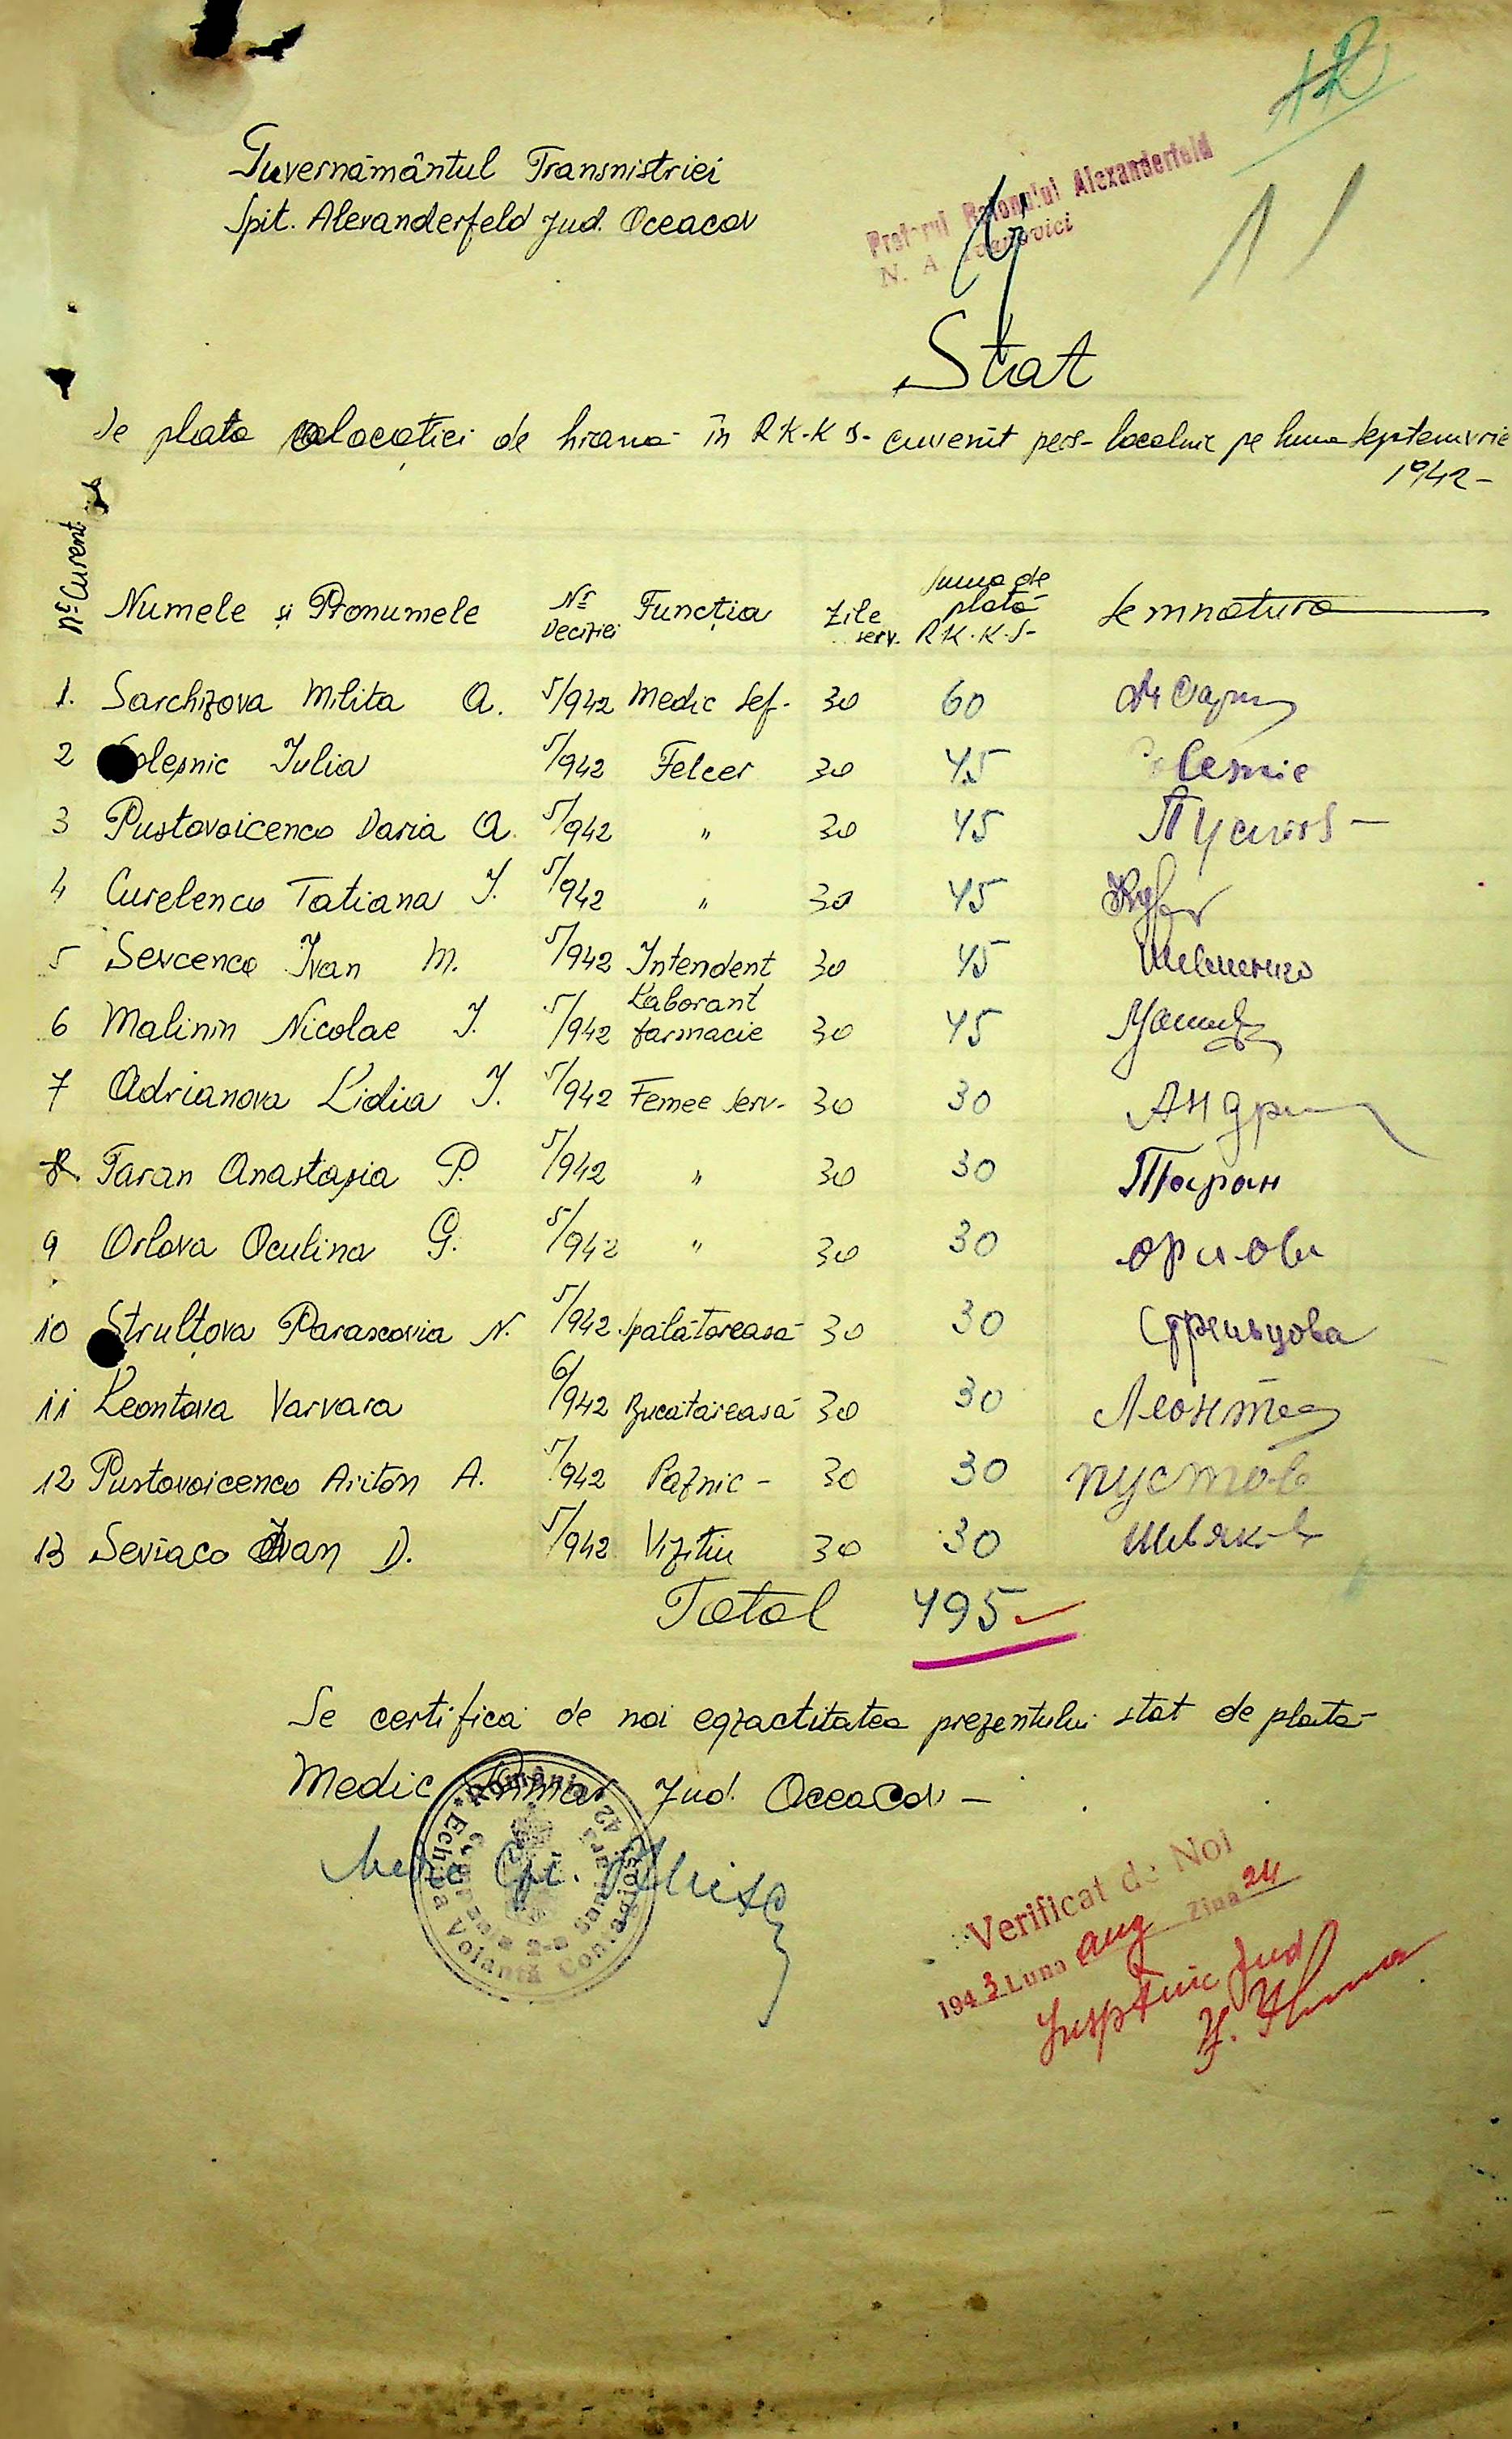 Guvernământul Transnistriei
Spit. Alexanderfeld Jud. Oceacov
Pretorul Raionului Alexanderfeld
N. A.
11
Stat
de plata alocației de hrană în R.K.K.S- cuvenit pers- localnic pe luna Septemvrie
1942-
No Curent Numele și Pronumele Nr Deciziei Funcția Zile serv. Suma de plată R.K.K.S- Semnatura
1. Sarchizova Milita A. 5/942 Medic Șef- 30 60
2 Colesnic Iulia 5/942 Felcer 30 45 Colesnic
3 Pustovoicenco Daria A. 5/942 " 30 45 Пустов-
4 Curelenco Tatiana I. 5/942 " 30 45
5 Sevcenco Ivan M. 5/942 Intendent 30 45 Шевченко
6 Malinin Nicolae I. 5/942 Laborant farmacie 30 45
7 Adrianova Lidia I. 5/942 Femee Serv- 30 30 Андри
8. Taran Anastasia P. 5/942 " 30 30 Таран
9 Orlova Oculina G. 5/942 " 30 30 Орлова
10 Strulțova Parascovia N. 5/942 Spălătoreasă 30 30 Стрельцова
11 Leontova Varvara 6/942 Bucătăreasă 30 30 Леонте
12 Pustovoicenco Ariton A. 5/942 Paznic - 30 30 пустов
13 Seviaco Ivan D. 5/942 Vizitiu 30 30 Шевяко
Total 495
Se certifică de noi eqzactitatea prezentului stat de plată-
Medic Primar Jud. Oceacov -
România
Echipa Volantă Contagioși
Compania 2-a Sanitară
Verificat de Noi
1943 Luna aug Ziua 24
Jud